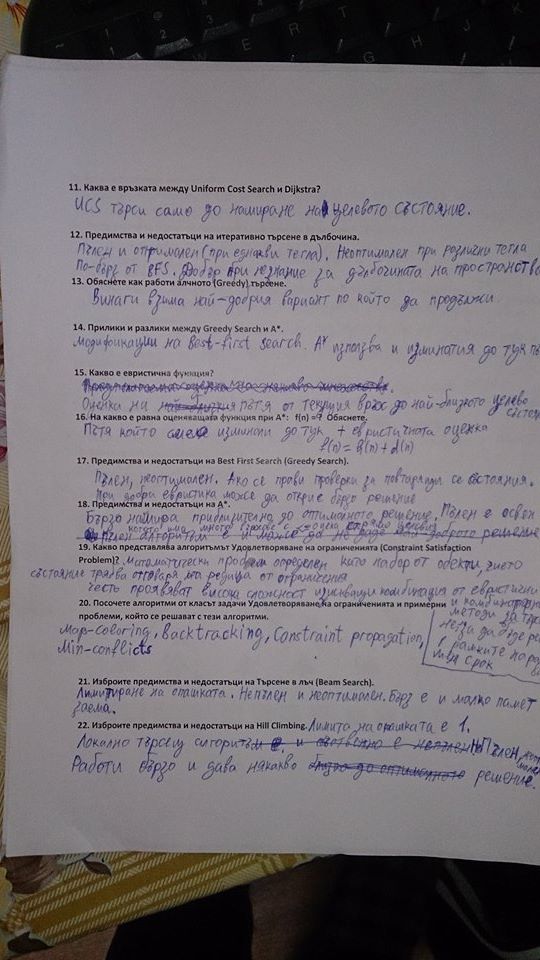 11. Каква е връзката между Uniform Cost Search и Dijkstra?
UCS търси само до намиране на целевото състояние.
12. Предимства и недостатъци на итеративно търсене в дълбочина.
Пълен и оптимален (при еднакви тегла). Неоптимален при различни тегла
По-бърз от BFS. Добър при незнание за дълбочината на пространство
13. Обяснете как работи алчното (Greedy) търсене.
Винаги взима най-добрия вариант по който да продължи.
14. Прилики и разлики между Greedy Search и A*.
Модификации на Best-first search. A* използва и изминатия до тук
15. Какво е евристична функция?
Оценка на пътя от текущия връх до най-близкото целево
16. На какво е равна оценяващата функция при A*: f(n) =? Обяснете.
Пътя който сме изминали до тук + евристичната оценка
17. Предимства и недостатъци на Best First Search (Greedy Search).
Пълен, неоптимален. Ако се прави проверки за повтарящи се състояния.
При добра евристика може да открие бързо решение
18. Предимства и недостатъци на A*.
Бързо намира приблизително до оптималното решение. Пълен е освен
19. Какво представлява алгоритъмът Удовлетворяване на ограниченията (Constraint Satisfaction
Problem)? Математически проблем определен като набор от обекти, чието
състояние трябва отговаря на редица от ограничения
често проявяват висока сложност изискващи комбинация от евристични
20. Посочете алгоритми от класът задачи Удовлетворяване на ограниченията и примерни
проблеми, който се решават с тези алгоритми.
Map-coloring, Backtracking, Constraint propagation,
Min-conflicts
21. Изброите предимства и недостатъци на Търсене в лъч (Beam Search).
Лимитиране на опашката. Непълен и неоптимален. Бърз е и малко памет
заема.
22. Изброите предимства и недостатъци на Hill Climbing. Лимита на опашката е 1.
Локално търсещ алгоритъм
Работи бързо и дава някакво решение.